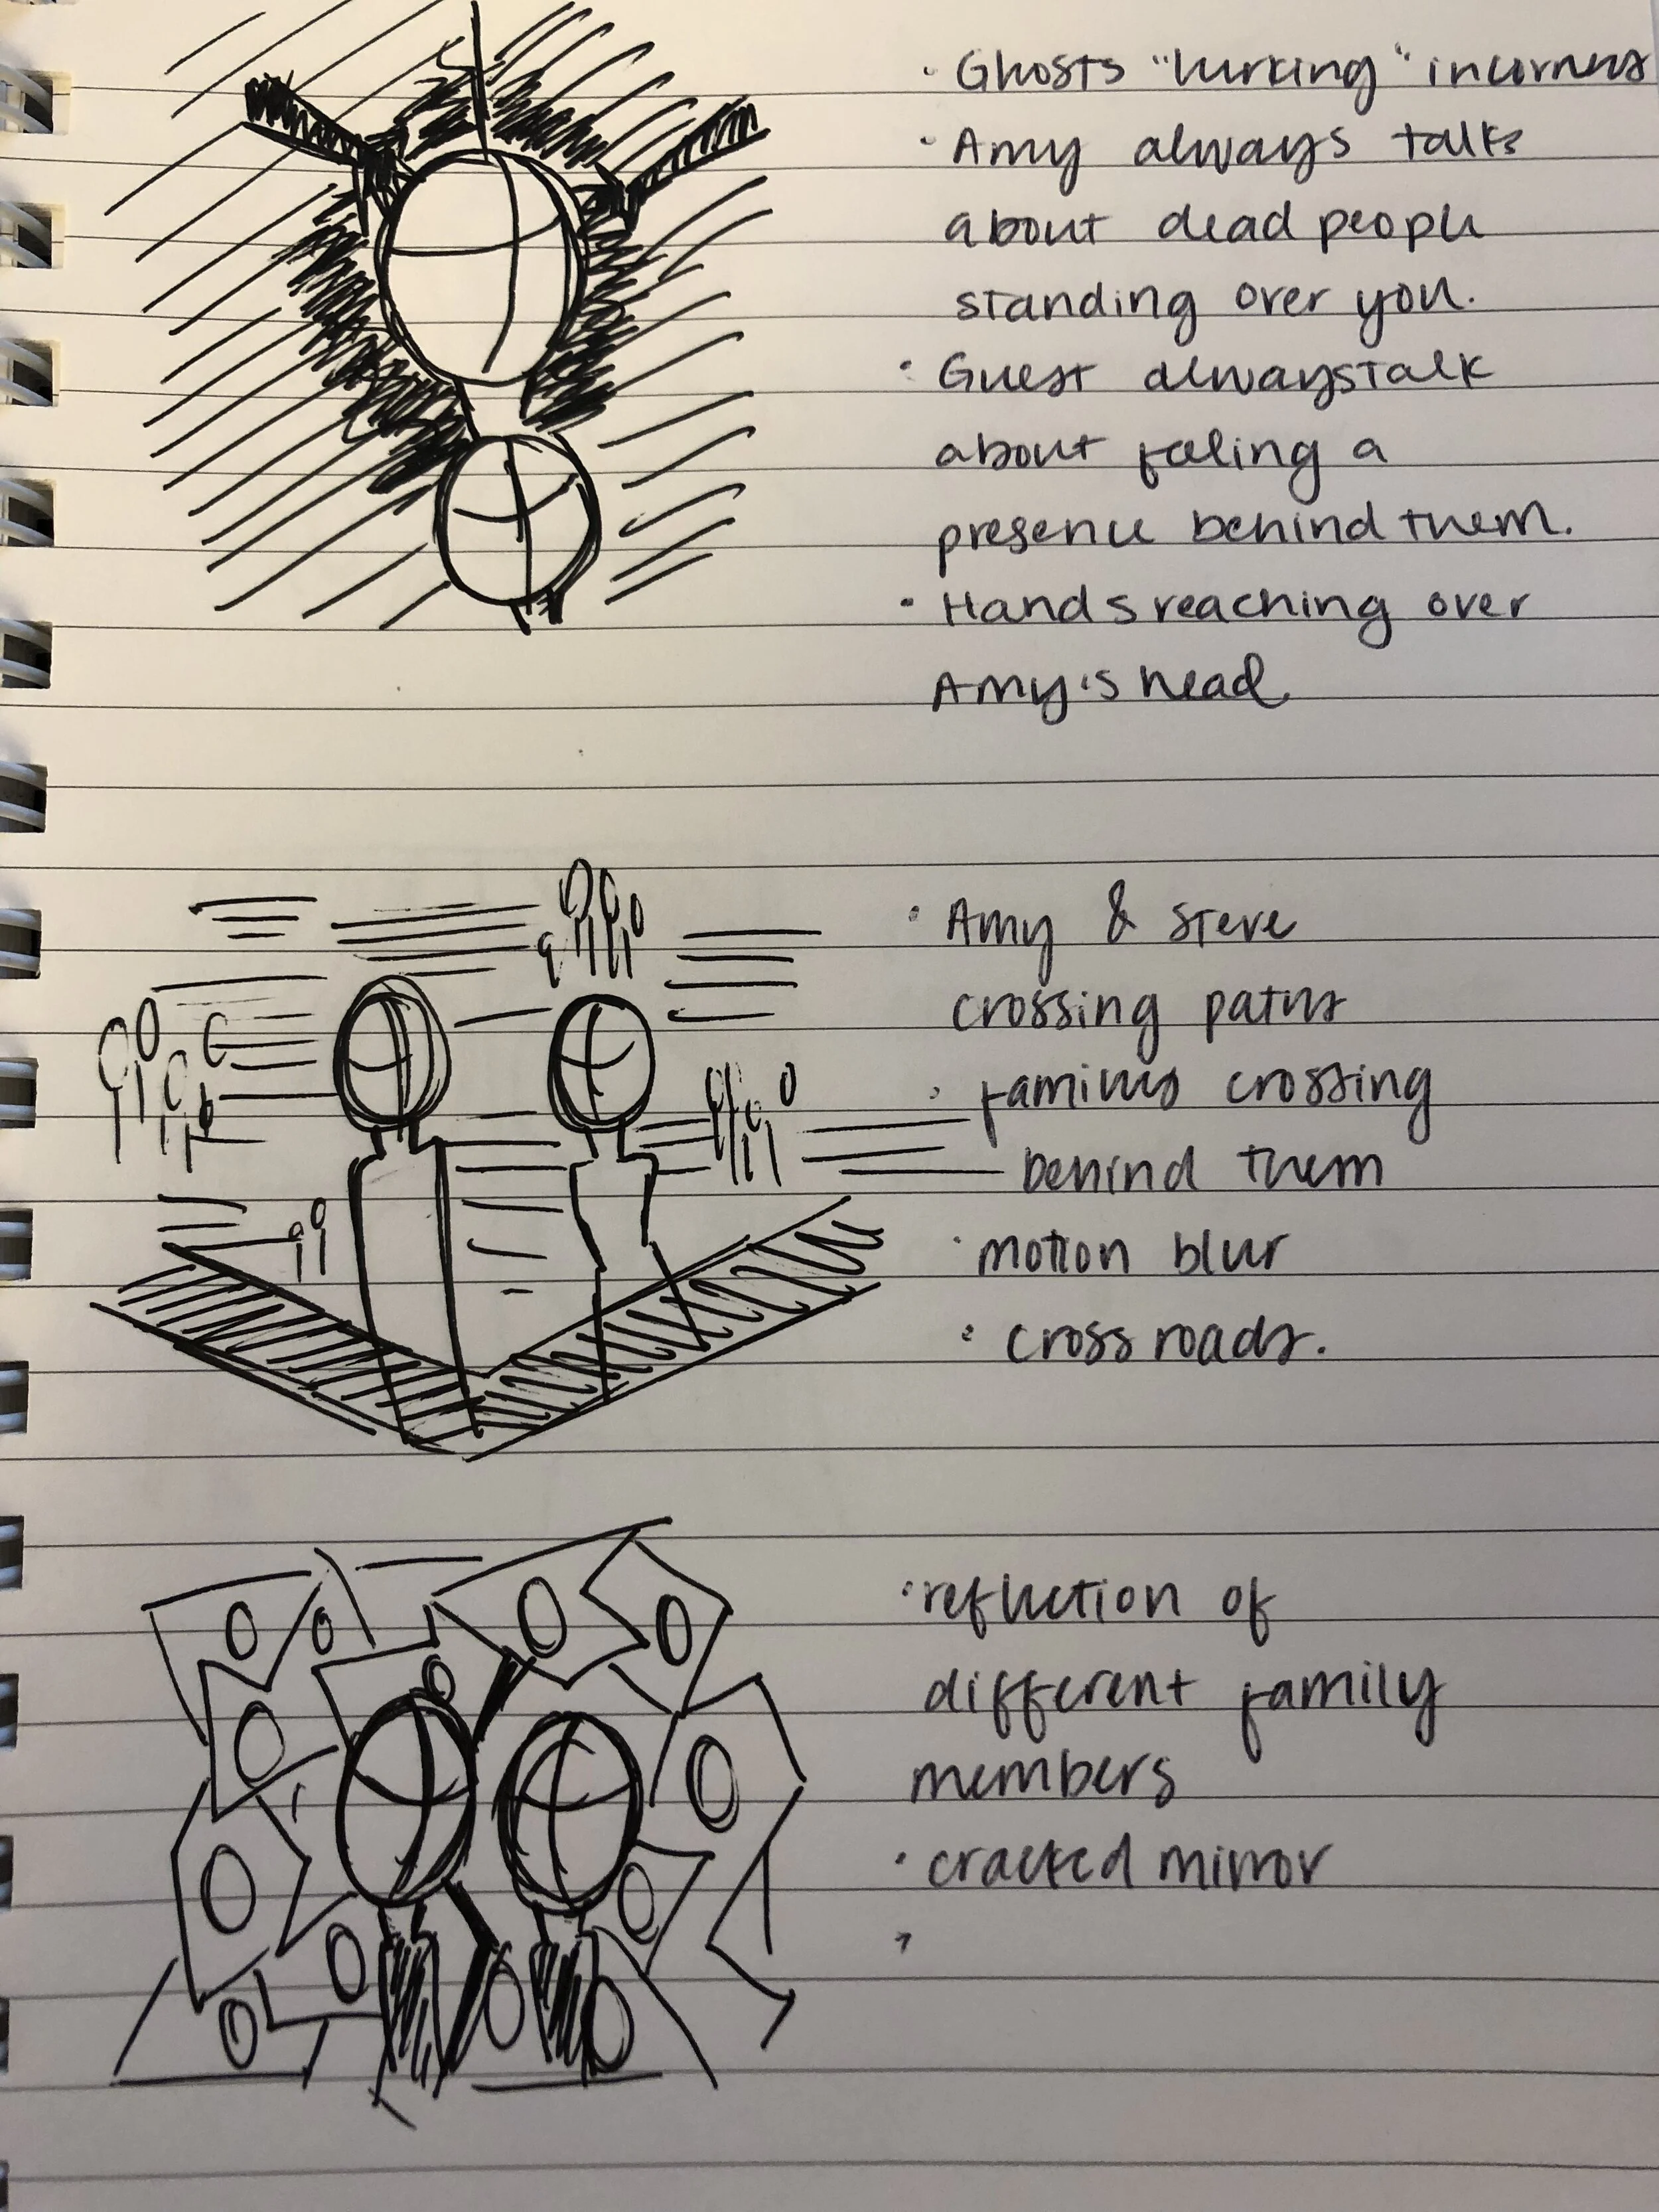 · Ghosts "lurking" in corners
· Amy always talks
about dead people
standing over you.
· Guest always talk
about feeling a
presence behind them.
· Hands reaching over
Amy's head.
· Amy & Steve
crossing paths
· families crossing
behind them
· motion blur
· cross roads.
· reflection of
different family
members
· cracked mirror